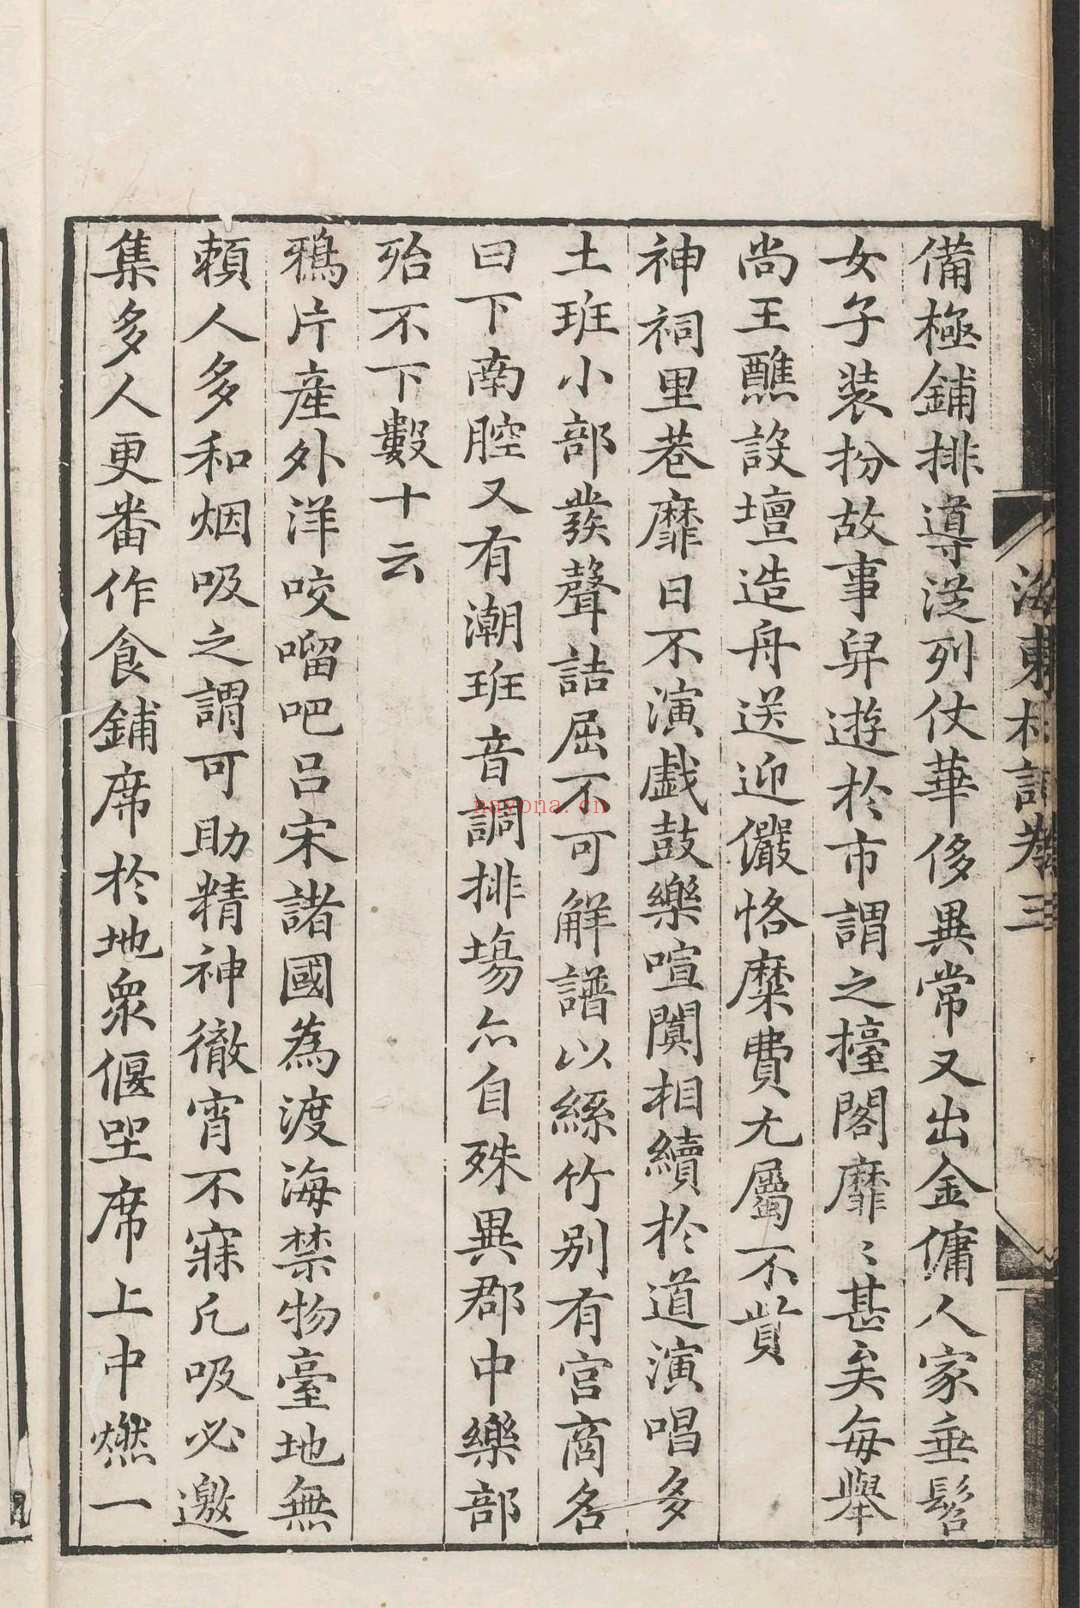 海東札記卷三
備極鋪排導從列仗華侈異常又出金傭人家垂髫
女子装扮故事舁遊於市謂之擡閣靡〻甚矣每舉
尚王醮設壇造舟送迎儼恪糜費尤屬不貲
神祠里巷靡日不演戯鼓樂喧闐相續於道演唱多
土班小部發聲詰屈不可觧譜以絲竹别有宫商名
曰下南腔又有潮班音調排塲亦自殊異郡中樂部
殆不下數十云
鴉片産外洋咬��吧吕宋諸國為渡海禁物臺地無
賴人多和烟吸之謂可助精神徹宵不寐凡吸必邀
集多人更番作食鋪席於地衆偃坐席上中燃一
nayona.cn